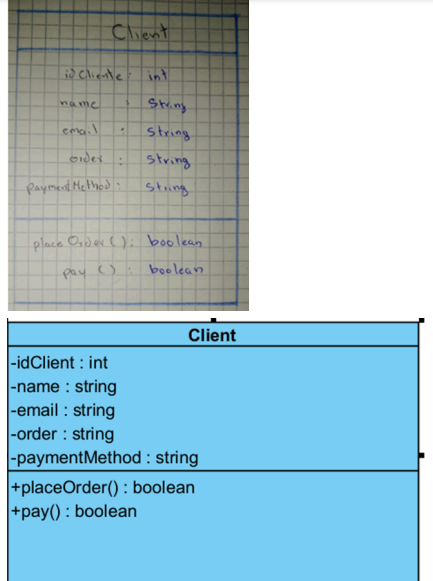 Client
idCliente: int
name : String
email : String
order : String
paymentMethod: String
placeOrder(): boolean
pay (): boolean
Client
-idClient : int
-name : string
-email : string
-order : string
-paymentMethod : string
+placeOrder() : boolean
+pay() : boolean